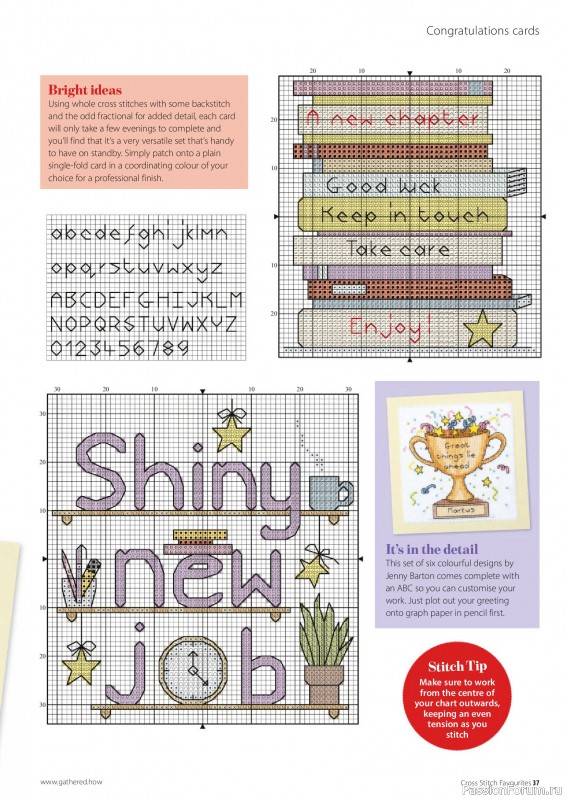 Congratulations cards
Bright ideas
Using whole cross stitches with some backstitch
and the odd fractional for added detail, each card
will only take a few evenings to complete and
you'll find that it's a very versatile set that's handy
to have on standby. Simply patch onto a plain
single-fold card in a coordinating colour of your
choice for a professional finish.
abcdefghijklmn
opqrstuvwxyz
ABCDEFGHIJKLM
NOPQRSTUVWXYZ
0123456789
20 10 10 20
20
10
10
20
A new chapter
Good luck
Keep in touch
Take care
Enjoy!
30 20 10 10 20 30
30
20
10
10
20
30
Shiny
new
job
Great
things lie
ahead
Markus
It's in the detail
This set of six colourful designs by
Jenny Barton comes complete with
an ABC so you can customise your
work. Just plot out your greeting
onto graph paper in pencil first.
Stitch Tip
Make sure to work
from the centre of
your chart outwards,
keeping an even
tension as you
stitch
www.gathered.how
Cross Stitch Favourites 37
PassionForum.ru